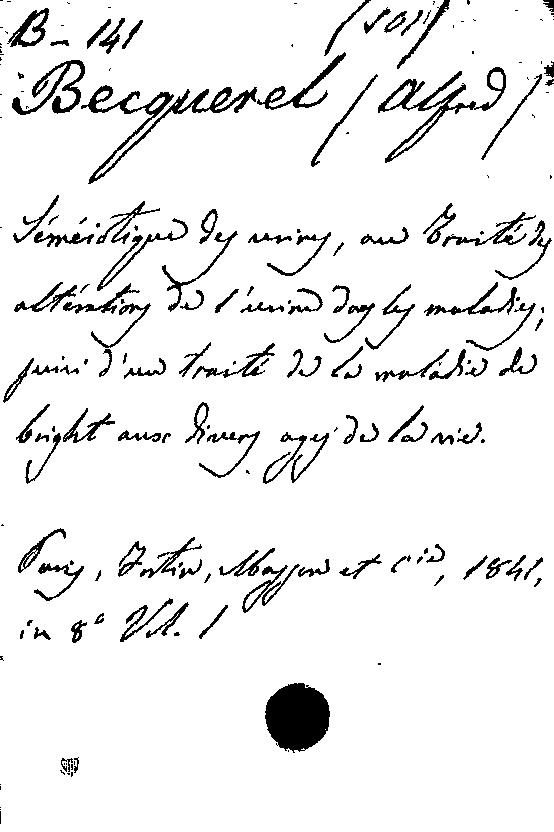 B - 141 (501)
Becquerel (Alfred)
Séméiotique des urines, ou Traité des
altérations de l'urine dans les maladies;
suivi d'un traité de la maladie de
bright aux divers ages de la vie.
Paris, Fortin, Masson et Cie, 1841,
in 8º Vol. 1